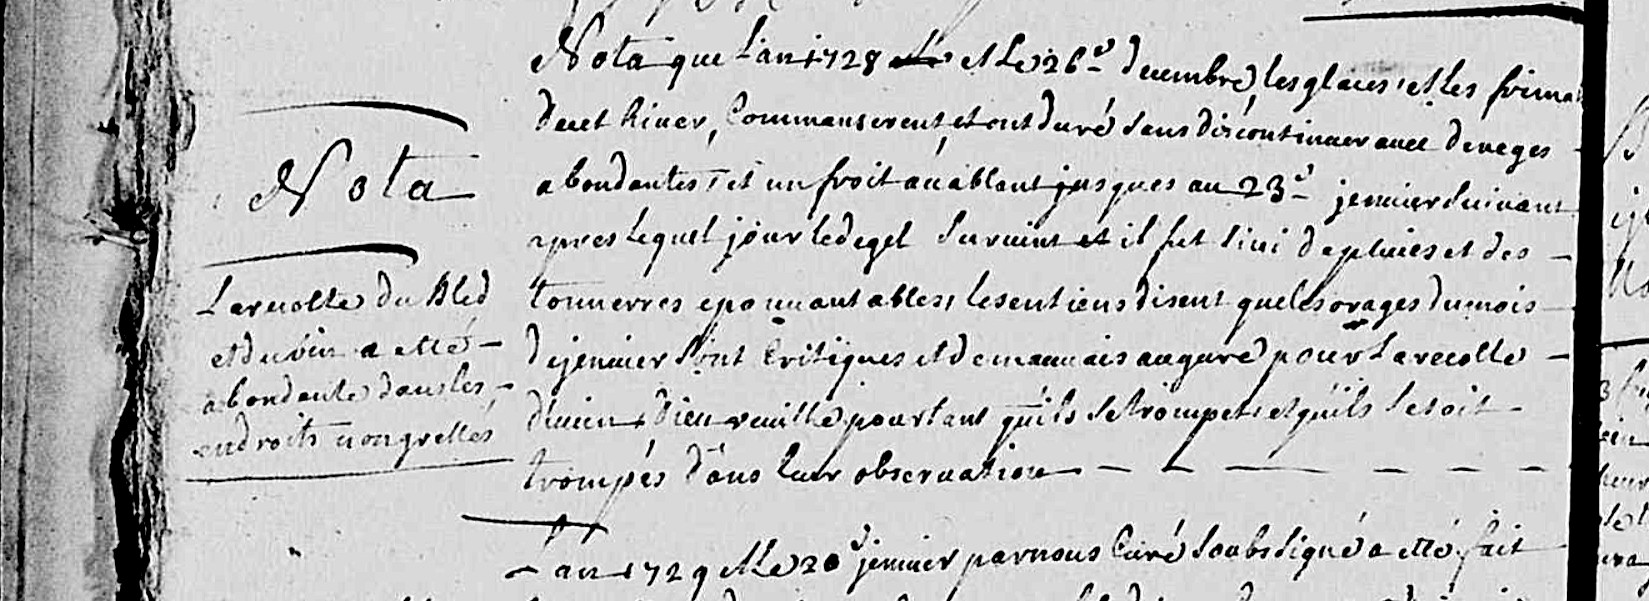 Nota
La recolte du Bled
et du vin a etté
abondante dans les
endroits non grellés
Nota que l'an 1728 et le 26e decembre, les glaces et les frimas
de cet hiver, Commanserent, et ont duré sans discontinuer avec de neges
abondantes, et un froit acablant jusques au 23e jenvier suivant
apres lequel jour le degel survint et il fut suivi de pluies et des
tonnerres epouvantables, les entiens disent que les orages du mois
de jenvier sont Critiques et de mauvais augure pour la recolte
Dieu veuille pourtant qu'ils se trompet et qu'ils se soit
trompés dans leur observation
L'an 1729 et le 20e jenvier par nous Curé soubsigné a etté fait